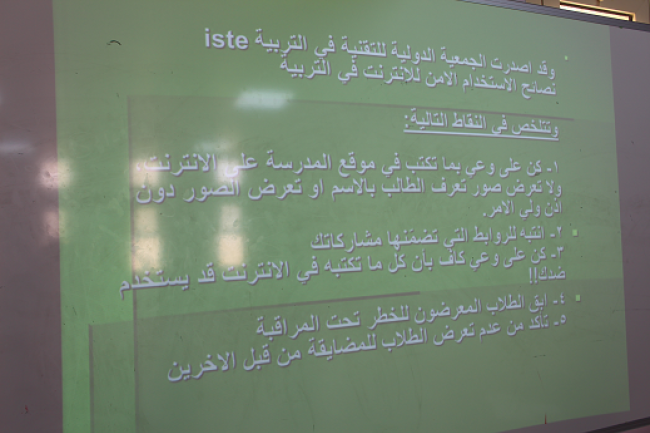 وقد اصدرت الجمعية الدولية للتقنية في التربية iste
نصائح الاستخدام الامن للإنترنت في التربية
وتتلخص في النقاط التالية:
١- كن على وعي بما تكتب في موقع المدرسة على الانترنت،
ولا تعرض صور تعرف الطالب بالاسم او تعرض الصور دون
اذن ولي الامر.
٢- انتبه للروابط التي تضمنها مشاركاتك
٣- كن على وعي كاف بأن كل ما تكتبه في الانترنت قد يستخدم
ضدك!!
٤- ابق الطلاب المعرضون للخطر تحت المراقبة
٥- تأكد من عدم تعرض الطلاب للمضايقة من قبل الاخرين